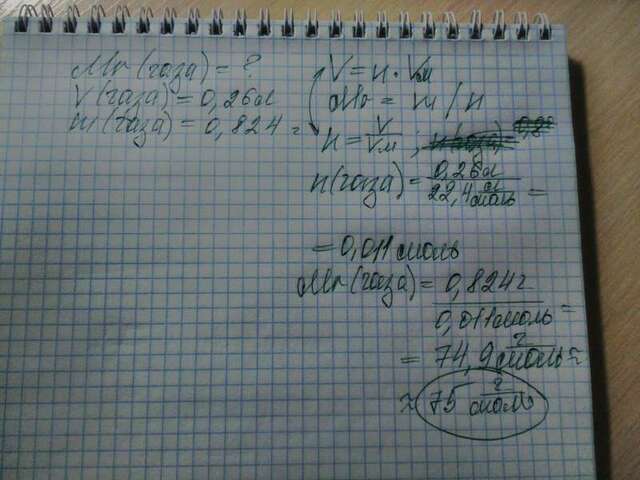 Mr (газа) = ?
V (газа) = 0,26л
m (газа) = 0,824г
V = n · Vм
Mr = m / n
n = V / Vм ;
n (газа) = 0,26л / 22,4 л/моль =
= 0,011 моль
Mr (газа) = 0,824г / 0,011 моль =
= 74,9 г/моль ≈
≈ 75 г/моль